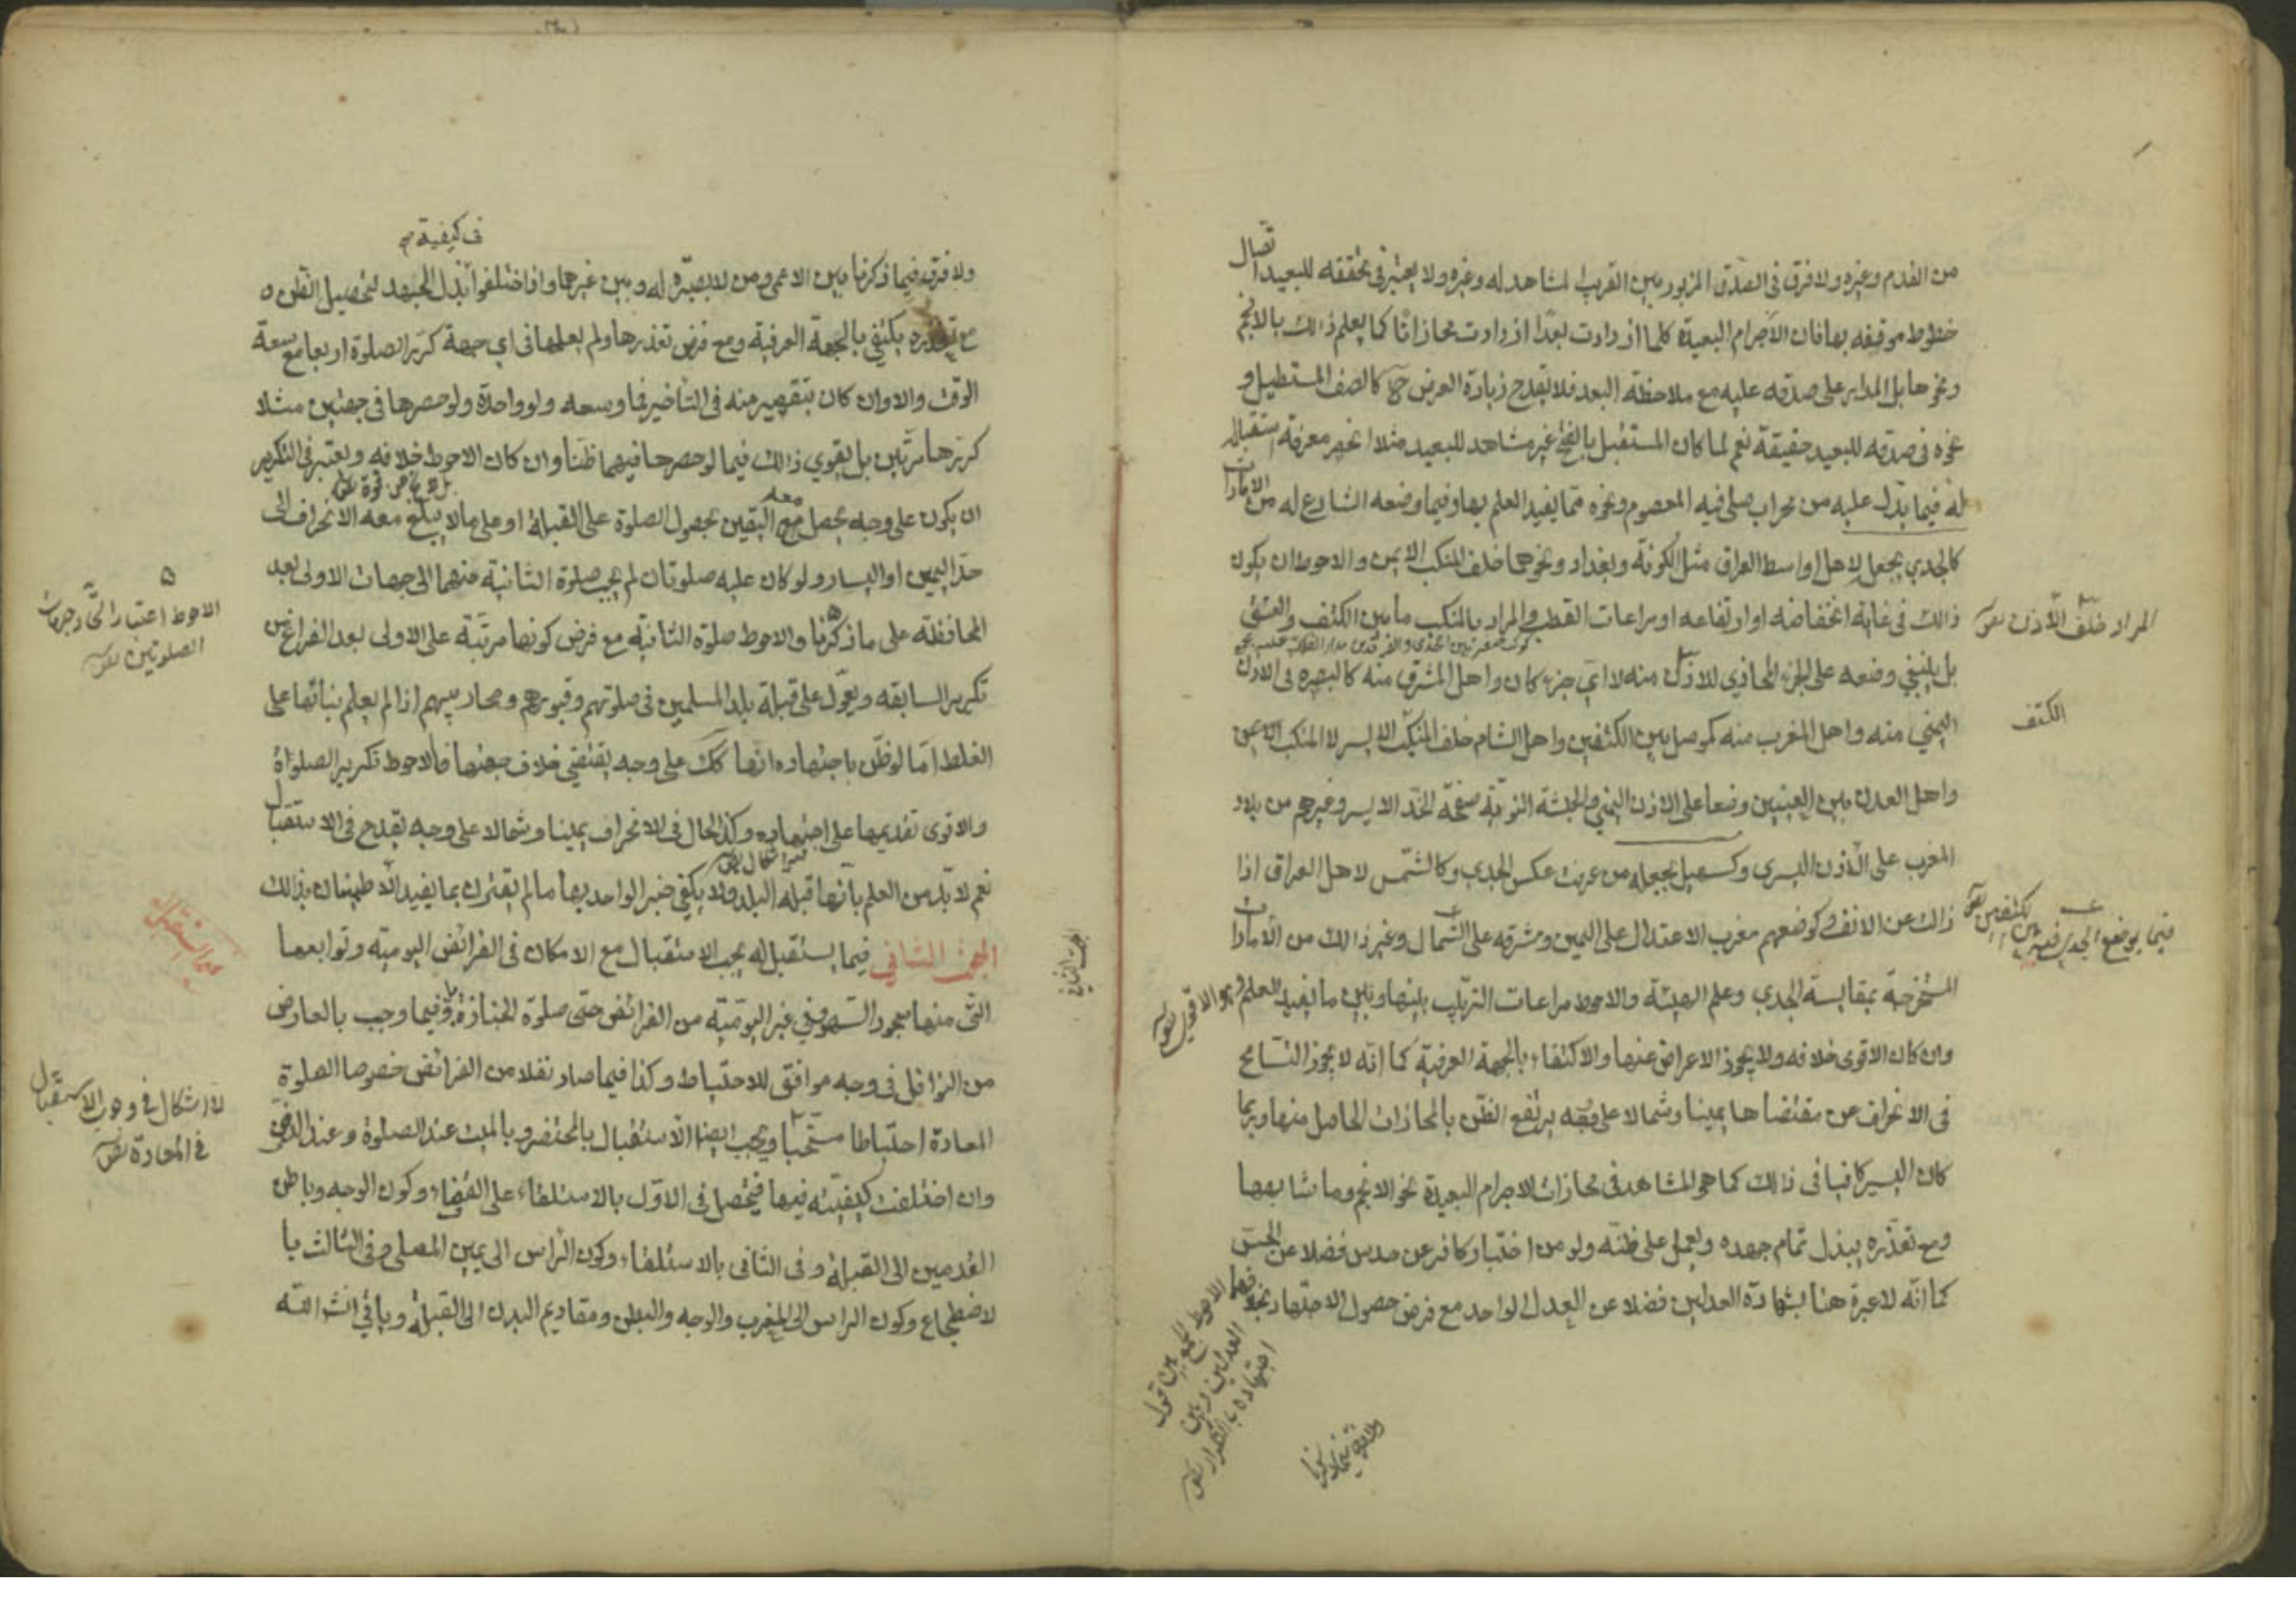 من القدم وغيره ولا فرق في الصدق المزبور بين القريب المشاهد له وغيره ولا يعتبر في تحققه للبعيد اتصال
خطوط موقفه بها فان الأجرام البعيدة كلما ازدادت بعدًا ازدادت محاذاتًا كما يعلم ذلك بالانجم
ونحوها بل المدار على صدقه عليه مع ملاحظة البعد فلا يقدح زيادة العرض ح كالصف المستطيل و
نحوه في صدقه للبعيد حقيقة نعم لما كان المستقبل بالفتح غير مشاهد للبعيد مثلا انحصر معرفة استقباله
له فيما يدل عليه من محراب صلى فيه المعصوم ونحوه مما يفيد العلم بها وفيما وضعه الشارع له من الامارات
كالجدي يجعل لاهل اواسط العراق مثل الكوفة وبغداد ونحوهما خلف المنكب الايمن والاحوط ان يكون
ذلك في غاية انخفاضه او ارتفاعه او مراعات القطب والمراد بالمنكب ما بين الكتف والعنق
بل ينبغي وضعه على الجزء المحاذي للاذن منه لا اي جزء كان واهل المشرق منه كالبصرة في الاذن
اليمني منه واهل المغرب منه كموصل بين الكتفين واهل الشام خلف المنكب الايسر لا المنكب الايمن
واهل العدن بين العينين وصنعا على الاذن اليمني والحبشة النوبة صفحة الخد الايسر وغيرهم من بلاد
المغرب على الاذن اليسري وكسهيل يجعله من عرفت عكس الجدي وكالشمس لاهل العراق اذا
زالت عن الانف وكوضعهم مغرب الاعتدال على اليمين ومشرقه على الشمال وغير ذلك من الأمارات
المستخرجة بمقايسة الجدي وعلم الهيئة والاحوط مراعات الترتيب بينها وبين ما يفيد العلم
وان كان الاقوى خلافه ولا يجوز الاعراض عنها والاكتفاء بالجهة العرفية كما انه لا يجوز التسامح
في الانحراف عن مقتضاها يمينا وشمالا على وجه يرتفع الظن بالمحاذات الحاصل منها وربما
كان اليسير كافيا في ذلك كما هو المشاهد في محاذات الاجرام البعيدة نحو الانجم وما شابهها
ومع تعذره يبذل تمام جهده ويعمل على ظنه ولو من اختبار كافر عن حدس فضلا عن الحس
كما انه لا عبرة هنا بشهادة العدلين فضلا عن العدل الواحد مع فرض حصول الاجتهاد بخلافها
المراد خلف الأذن
الكتف
وهو الاقوى
الاحوط الجمع بين قول
العدلين وبين
اجتهاده بالتكرار
ولا فرق فيما ذكرنا
في كيفية
ولا فرق فيما ذكرنا بين الاعمى ومن لا بصيرة له وبين غيرهما واذا اختلفوا بذل الجهد لتحصيل الظن و
مع تعذره يكتفي بالجهة العرفية ومع فرض تعذرها ولم يعلمها في اي جهة كرر الصلوة اربعا مع سعة
الوقت والا وان كان بتقصير منه في التأخير فما وسعه ولو واحدة ولو حصرها في جهتين مثلا
كررها مرتين بل يقوي ذلك فيما لو حصرها فيهما ظنا وان كان الاحوط خلافه ويعتبر في التكرير
ان يكون على وجه يحصل معه اليقين بحصول الصلوة على القبلة او على ما لا يبلغ معه الانحراف الى
حد اليمين او اليسار ولو كان عليه صلوتان لم يجب صلوة الثانية منهما الى جهات الاولى بعد
المحافظة على ما ذكرنا والاحوط صلوة الثانية مع فرض كونها مرتبة على الاولى بعد الفراغ من
تكرير السابقة ويعول على قبلة بلد المسلمين في صلوتهم وقبورهم ومحاريبهم اذا لم يعلم بنائها على
الغلط اما لو ظن باجتهاده انها كك على وجه يقتضي خلاف جهتها فالاحوط تكرير الصلواة
والاقوى تقديمها على اجتهاده وكذا الحال في الانحراف يمينا وشمالا على وجه يقدح في الاستقبال
نعم لا بد من العلم بأنها قبلة البلد ولا يكفي خبر الواحد بها ما لم يقترن بما يفيد الاطمينان بذلك
المبحث الثاني فيما يستقبل له يجب الاستقبال مع الامكان في الفرائض اليومية وتوابعها
التي منها سجود السهو وفي غير اليومية من الفرائض حتى صلوة الجنازة وفيما وجب بالعارض
من النوافل في وجه موافق للاحتياط وكذا فيما صار نفلا من الفرائض خصوصا الصلوة
المعادة احتياطا مستحبا ويجب ايضا الاستقبال بالمحتضر وبالميت عند الصلوة وعند الدفن
وان اختلفت كيفيته فيها فيحصل في الاول بالاستلقاء على القفاء وكون الوجه وباطن
القدمين الى القبلة وفي الثاني بالاستلقاء وكون الرأس الى يمين المصلي وفي الثالث با
لاضطجاع وكون الراس الى المغرب والوجه والبطن ومقاديم البدن الى القبلة ويأتي انشاء الله
الاحوط اعتبار اتحاد جهات
الصلوتين
لا اشكال في وجوب الاستقبال
في المعادة
المبحث الثاني